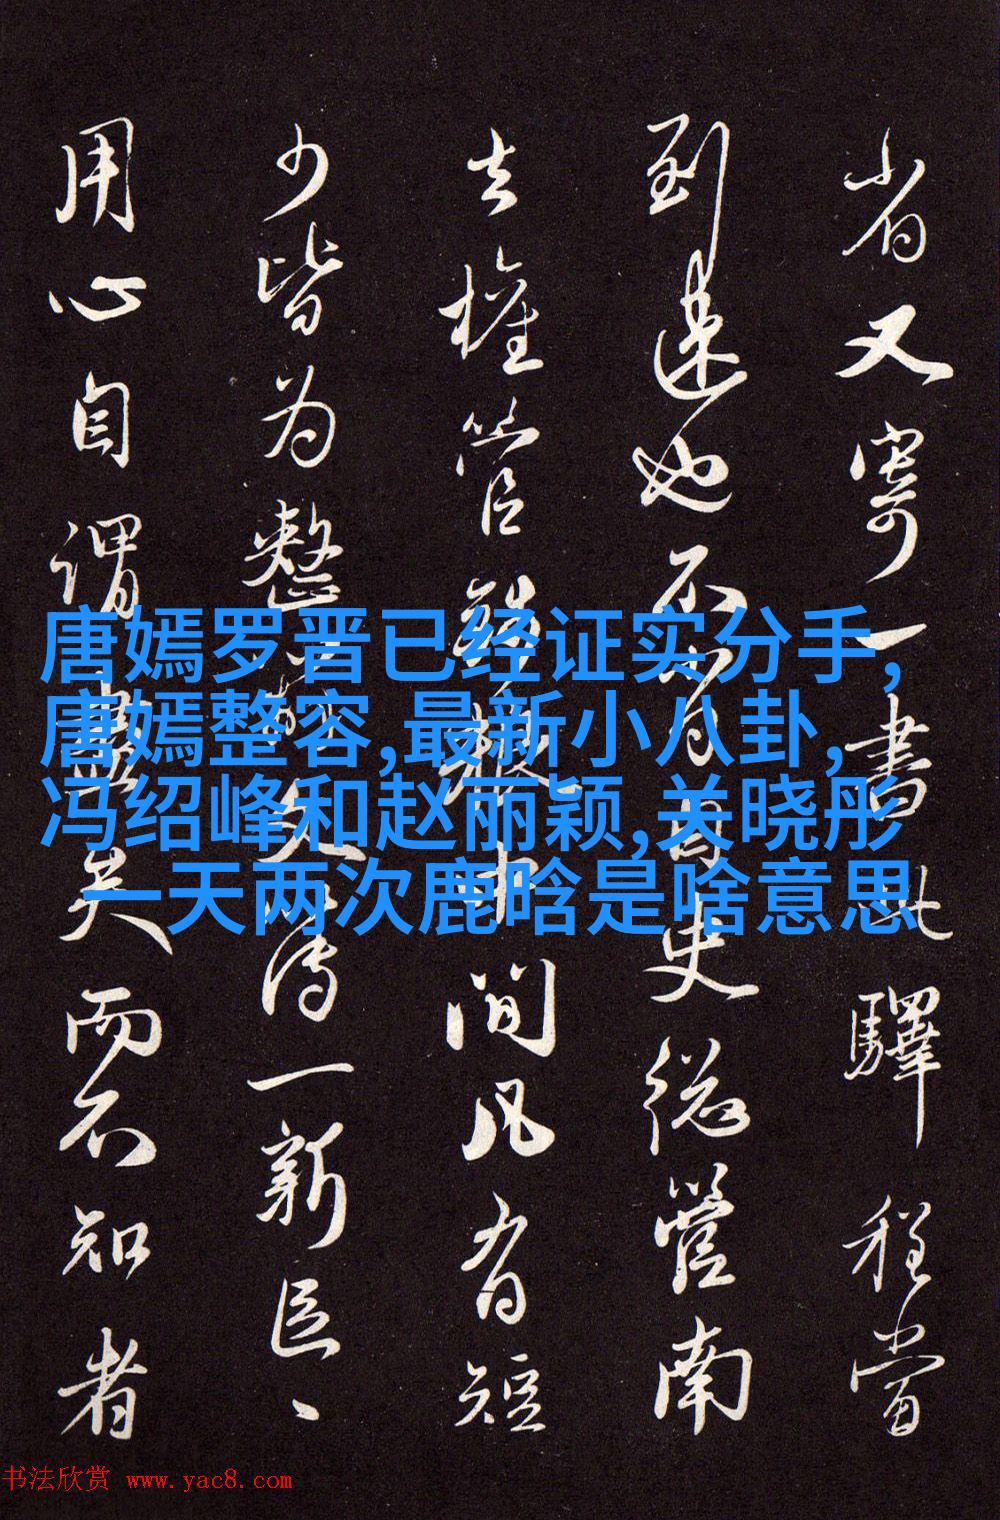 省又寄一書此驛程當
到遠也不
史總管南
去權管
中間凡有短
少皆为整
文字傳一新医、
用心自謂盡矣而不知者
唐嫣罗晋已经证实分手,
唐嫣整容,最新小八卦,
冯绍峰和赵丽颖,关晓彤
一天两次鹿晗是啥意思
书法欣赏 www.yac8.com